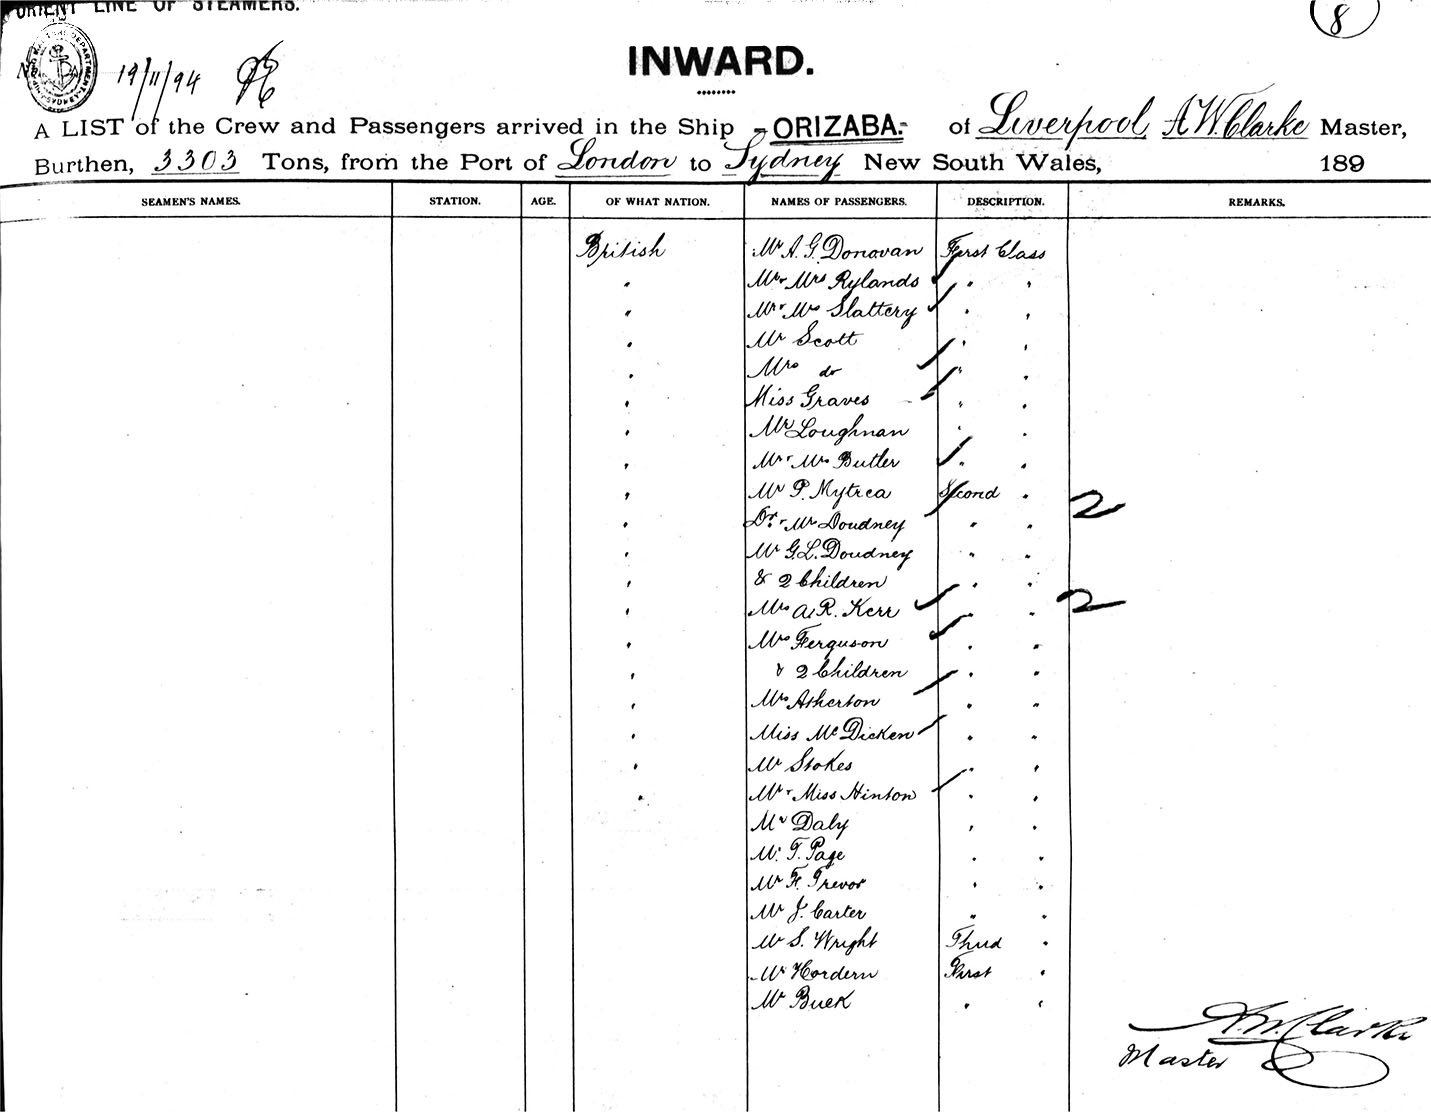 ORIENT LINE OF STEAMERS.
8
19/11/94
INWARD.
A LIST of the Crew and Passengers arrived in the Ship -ORIZABA.- of Liverpool A W Clarke Master,
Burthen, 3303 Tons, from the Port of London to Sydney New South Wales, 189
SEAMEN'S NAMES. STATION. AGE. OF WHAT NATION. NAMES OF PASSENGERS. DESCRIPTION. REMARKS.
British Mr A. G. Donovan First Class
" Mr & Mrs Rylands " "
" Mr & Mrs Slattery " "
" Mr Scott " "
" Mrs do " "
" Miss Graves " "
" Mr Loughnan " "
" Mr & Mrs Butler " "
" Mr P. Mytrea Second " 2
" Dr. & Mrs Doudney " "
" Mr G. L. Doudney " "
" & 2 Children " "
" Mrs A. R. Kerr " " 2
" Mrs Ferguson " "
" & 2 Children " "
" Mrs Atherton " "
" Miss McDicken " "
" Mr Stokes " "
" Mr & Miss Hinton " "
Mr Daly " "
Mr T. Page " "
Mr F. Trevor " "
Mr J. Carter " "
Mr S. Wright Third "
Mr Hordern First "
Mr Buck " "
A. W. Clarke
Master